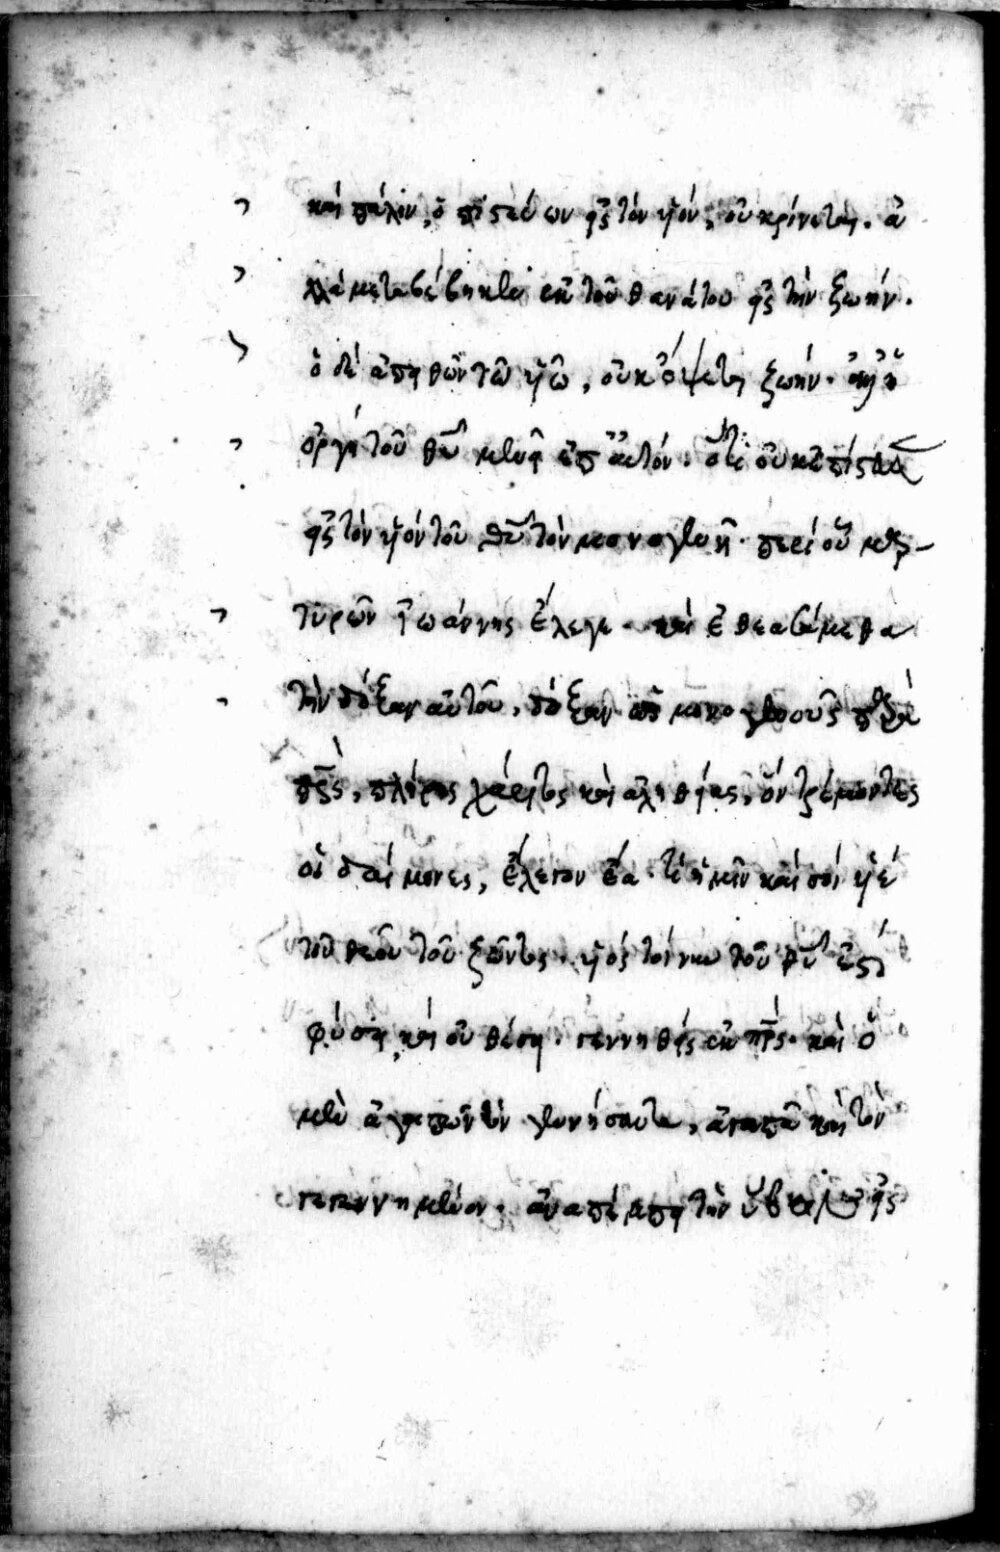 καὶ πάλιν, ὁ πιστεύων εἰς τὸν υἱὸν, οὐ κρίνεται. ἀ
λλὰ μεταβέβηκεν ἐκ τοῦ θανάτου εἰς τὴν ζωήν.
ὁ δὲ ἀπειθῶν τῶ υἱῶ, οὐκ ὄψεται ζωήν. ἀλλ' ἡ
ὀργὴ τοῦ θυ μένει ἐπ' αὐτόν. ὅτι οὐκ ἐπίστευσεν
εἰς τὸν υἱὸν τοῦ θυ τὸν μονογενῆ. περὶ οὗ μαρ
τυρῶν ἰωάννης ἔλεγε. καὶ ἐθεασάμεθα
τὴν δόξαν αὐτοῦ, δόξαν ὡς μονογενοῦς παρὰ
πρς, πλήρης χάριτος καὶ ἀληθείας, ὃν τρέμοντες
οἱ δαίμονες, ἔλεγον ἔα. τί ἡμῖν καὶ σοὶ υἱὲ
τοῦ θεοῦ τοῦ ζῶντος. υἱὸς τοίνυν τοῦ θυ ἐστὶ
φύσει καὶ οὐ θέσει. γεννηθεὶς ἐκ πρς. καὶ ὁ
μὲν ἀγαπῶν τὸν γεννήσαντα, ἀγαπᾶ καὶ τὸν
γεγεννημένον. ἀναπέμπει τὴν ὕβριν εἰς